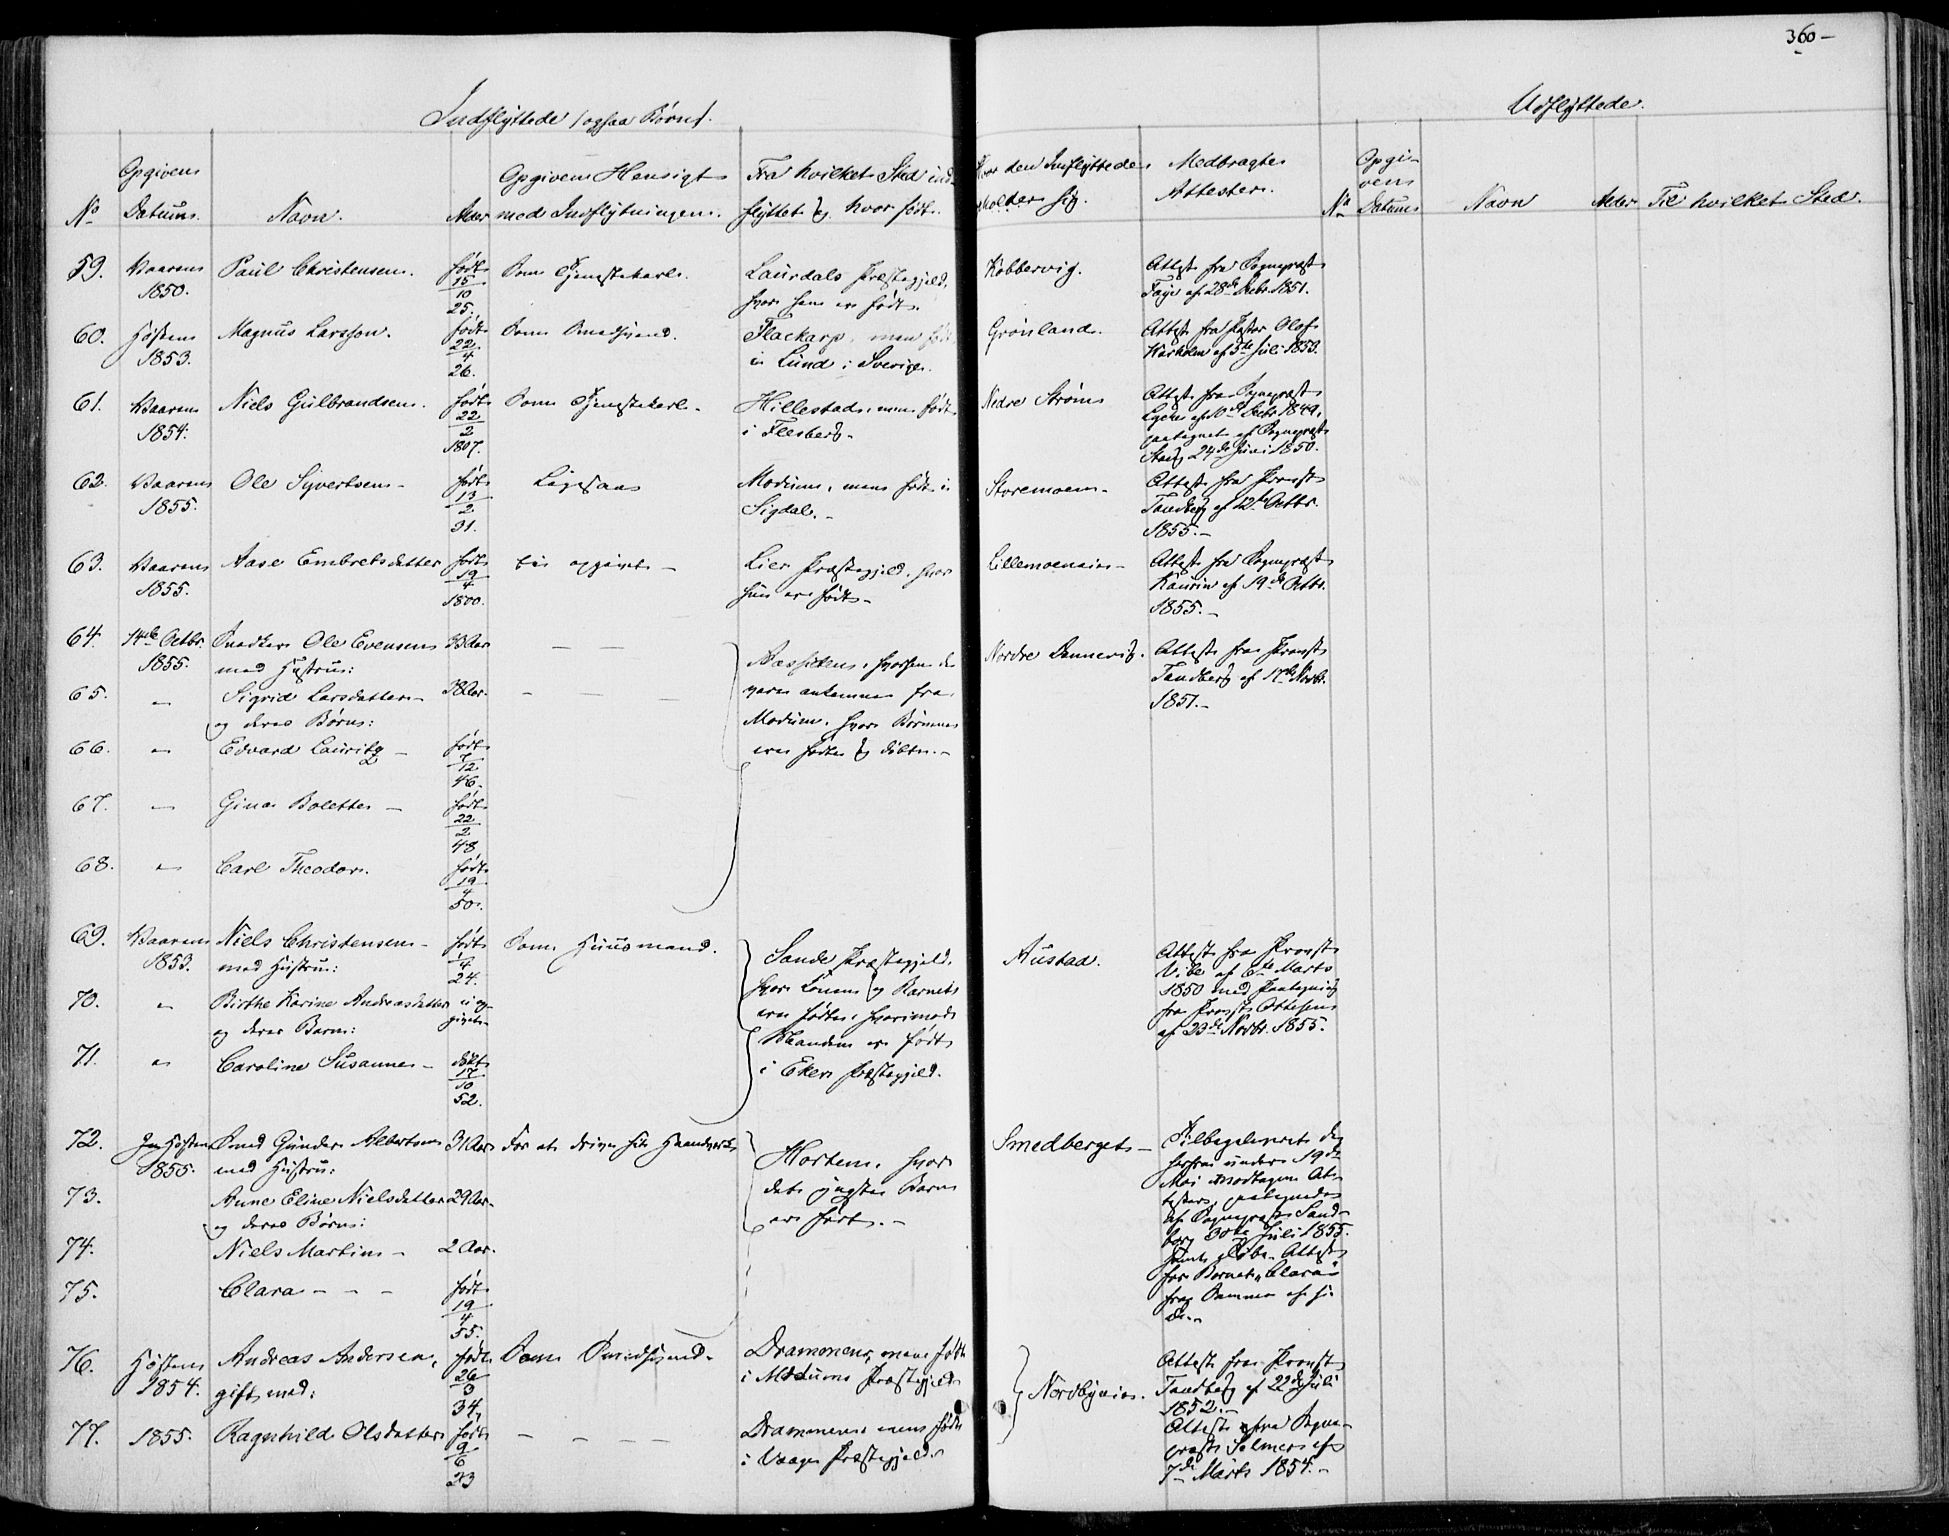 360 –
Indflyttede (ogsaa Børn).
Udflyttede.
No
Opgivens Datum.
Navn.
Alder
Opgiven Hensigt med Indflytningen.
Fra hvilket Sted indflyttet og hvor født.
Hvor den Indflyttede opholder sig.
Medbragte Attester.
No
Opgivens Datum
Navn
Alder
Til hvilket Sted.
59. Vaaren 1850. Paul Christensen. født 15/10 25. Som Tjenestekarl. Laurdals Præstegjeld, hvor han er født. Kobbervig. Attest fra Sognepræst Faye af 28de Decbr. 1851.
60. Høsten 1853. Magnus Larsson. født 22/4 26. Som Smedsvend. Flackarp, men født i Lund i Sverige. Grønland. Attest fra Pastor Olof af 5te Juli 1853.
61. Vaaren 1854. Niels Gulbrandsen. født 22/2 1807. Som Tjenestekarl. Hillestad, men født i Flesberg. Nedre Strøm Attest fra Sognepræst af 10de Decbr. 1849, paategnet af Sognepræst 24de Juni 1850.
62. Vaaren 1855. Ole Syvertsen – født 13/2 31. Ligesaa Modum, men født i Sigdal. – Storemoen – Attest fra Provst Tandberg af 12te Octbr. 1855. –
63. Vaaren 1855. Aase Embretsdatter født 19/4 1800. Ei opgivet – Lier Præstegjeld, hvor hun er født – Lillemoeneie – Attest fra Sognepræst Kaurin af 19de Octbr. 1855. –
64. 14de Octbr. 1855. Snedker Ole Evensen med Hustru: 33 Aar – – Aassiden, hvorhen de vare ankomne fra Modum, hvor Børnene ere fødte og døbte. – Nordre Dannevig. Attest fra Provst Tandberg af 17de Novbr. 1851. –
65. " Sigrid Larsdatter – og deres Børn: 38 Aar. – – –
66. " Edvard Lauritz – født 7/12 46.
67. " Gina Bolette – født 22/2 48
68. " Carl Theodor. født 19/4 50.
69. Vaaren 1853. Niels Christensen – med Hustru: født 1/4 24. Som Huusmand. Sande Præstegjeld, hvor Konen og Barnet ere fødte, hvorimod Manden er født i Eker Præstegjeld. Austad. Attest fra Provst Vibe af 6te Marts 1850 med Paategning fra Provst Ottesen af 23de Novbr. 1855.
70. " Birthe Karine Andreasdatter og deres Barn: ei opgivet –
71. " Caroline Susanne – født 17/10 52.
72. Høsten 1855. Smed Gunder Albertsen med Hustru: 31 Aar For at drive sit Haandværk Horten, hvor det yngste Barn er født. – Smedberget – Tilbageleveret den herfra under 19de Mai modtagne Attest, paategnet af Sognepræst Sandborg 30te Juli 1855. Døbe-Attest for Barnet "Clara" fra Samme af s. D. –
73. Anne Eline Nielsdatter og deres Børn: 29 Aar.
74. Niels Martin – 2 Aar.
75. Clara – – – født 19/4 55.
76. Høsten 1854. Andreas Andersen, gift med: født 26/3 34, Som Smedsvend. Drammen, men født i Modums Præstegjeld Nordbyeie. Attest fra Provst Tandberg af 22de Juli 1852. –
77. 1855. Ragnhild Olsdatter født 9/6 23 – – – – Drammen, men født i Vaage Præstegjeld. Attest fra Sognepræst Selmer af 7de Marts 1854. –